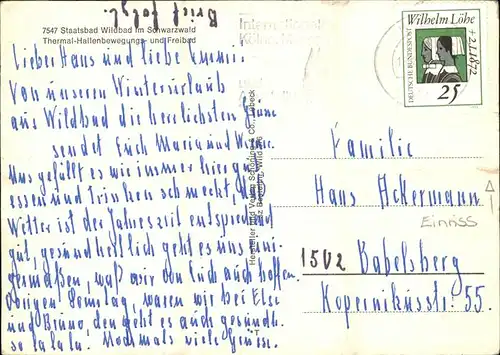 Brief folgt.
7547 Staatsbad Wildbad im Schwarzwald
Thermal-Hallenbewegungs- und Freibad
Lieber Hans und liebe Emmi.
Von unseren Winterurlaub
aus Wildbad die herzlichsten
sendet Euch Maria und
Uns gefällt es wie immer hier
essen und Trinken schmeckt,
Wetter ist der Jahreszeit entsprechend
gut, gesundheitlich geht es uns eini-
germaßen, was wir von Euch auch hoffen.
Vorigen Sonntag, waren wir bei Else
und Bruno, den geht es auch gesundh.
so lala. Nochmals viele Grüsse.
Hersteller und Verlag Schöning & Co., Lübeck
Wilhelm Löhe
+ 2.1.1872
DEUTSCHE BUNDESPOST
25
Familie
Hans Ackermann
Einriss
1502 Babelsberg
Kopernikusstr. 55.